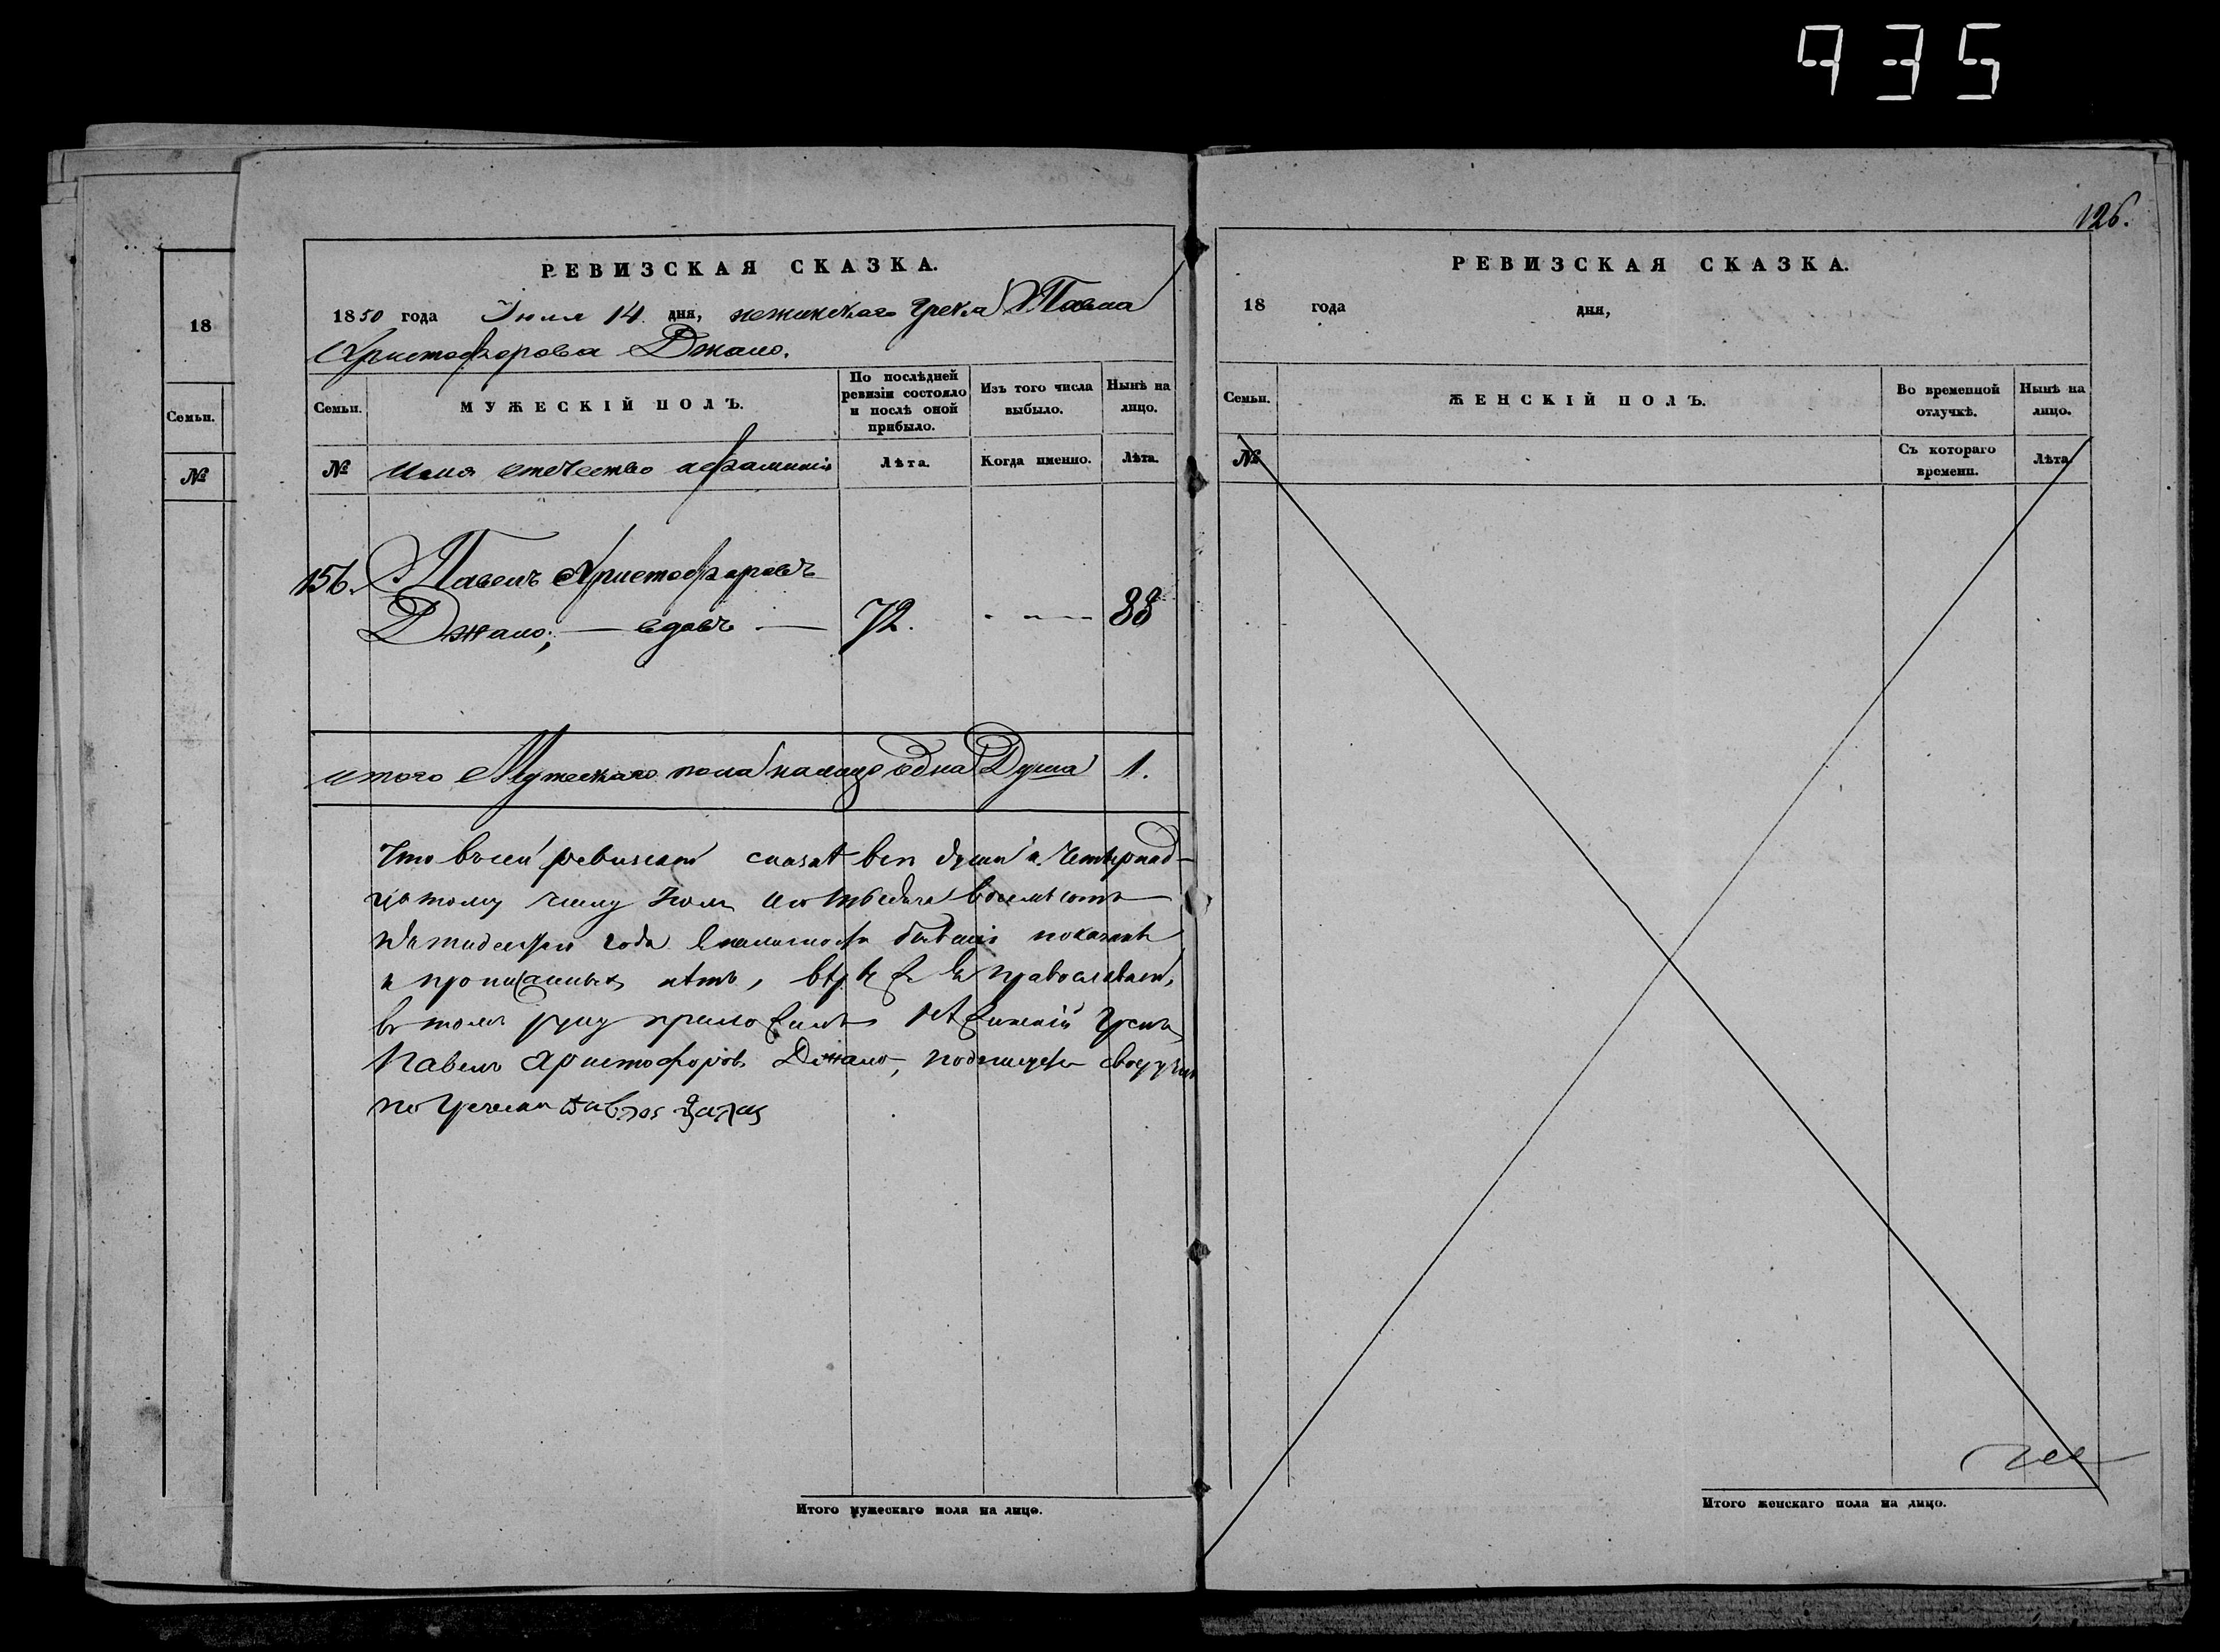 935
126.
18
Семьи.
№
РЕВИЗСКАЯ СКАЗКА.
1850 года Июля 14 дня, нежинскаго Грека Павла
Христофорова Джано.
Семьи.
МУЖЕСКІЙ ПОЛЪ.
По послѣдней ревизіи состояло и послѣ оной прибыло.
Изъ того числа выбыло.
Нынѣ на лицо.
№
Имя отчество и фамилія
Лѣта.
Когда именно.
Лѣта.
156. Павелъ Христофоровъ
Джано; — вдовъ — 72. - — 88
итого Мужескаго пола налицо одна Душа 1.
Что въ сей ревизской всѣ души к. Четырнад-
цатому числу Іюля восемьсотъ
года бывшіе показаны
и прописанныхъ лѣтъ,
въ томъ руку Грекъ
Павелъ Христофоровъ Джано,
по Гречески
Итого мужескаго пола на лицо.
РЕВИЗСКАЯ СКАЗКА.
18 года дня,
Семьи.
ЖЕНСКІЙ ПОЛЪ.
Во временной отлучкѣ.
Нынѣ на лицо.
№
Съ котораго времени.
Лѣта.
Итого женскаго пола на лицо.